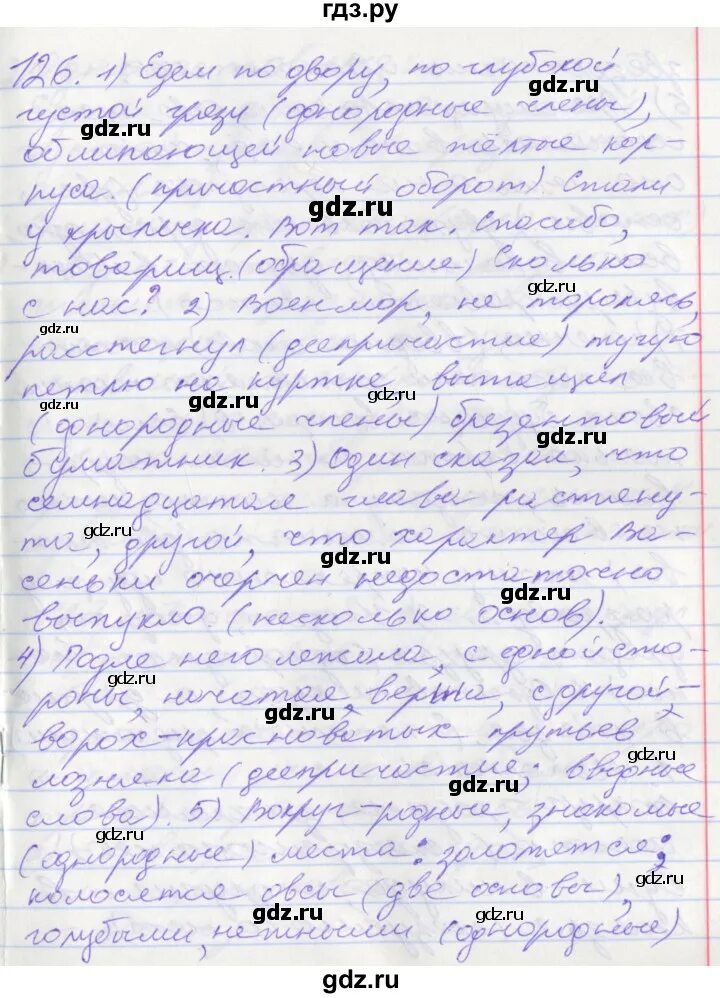 гдз.ру
126. 1) Едем по двору, по глубокой
густой грязи (однородные члены),
облипающей новые жёлтые кор-
пуса. (причастный оборот). Стали
у крылечка. Вот так. Спасибо,
товарищ. (обращение) Сколько
с нас? 2) Военмор, не торопясь,
расстегнул (деепричастие) тугую
петлю на куртке, вытащил
(однородные члены) брезентовый
бумажник. 3) Один сказал, что
семнадцатая глава растяну-
та, другой, что характер Ва-
сеньки очерчен недостаточно
выпукло. (несколько основ).
4) Подле него лежала, с одной сто-
роны, начатая верша, с другой,-
ворох-красноватых прутьев
лозняка (деепричастие; вводные
слова). 5) Вокруг-родные, знакомые
(однородные) места: золотятся;
колосятся овсы (две основы),
голубыми, нежными (однородные)
gdz.ru
gdz.ru
gdz.ru
gdz.ru
gdz.ru
gdz.ru
gdz.ru
gdz.ru
gdz.ru
gdz.ru
gdz.ru
gdz.ru
gdz.ru
gdz.ru
gdz.ru
gdz.ru
gdz.ru
gdz.ru
gdz.ru
gdz.ru
gdz.ru
gdz.ru
gdz.ru